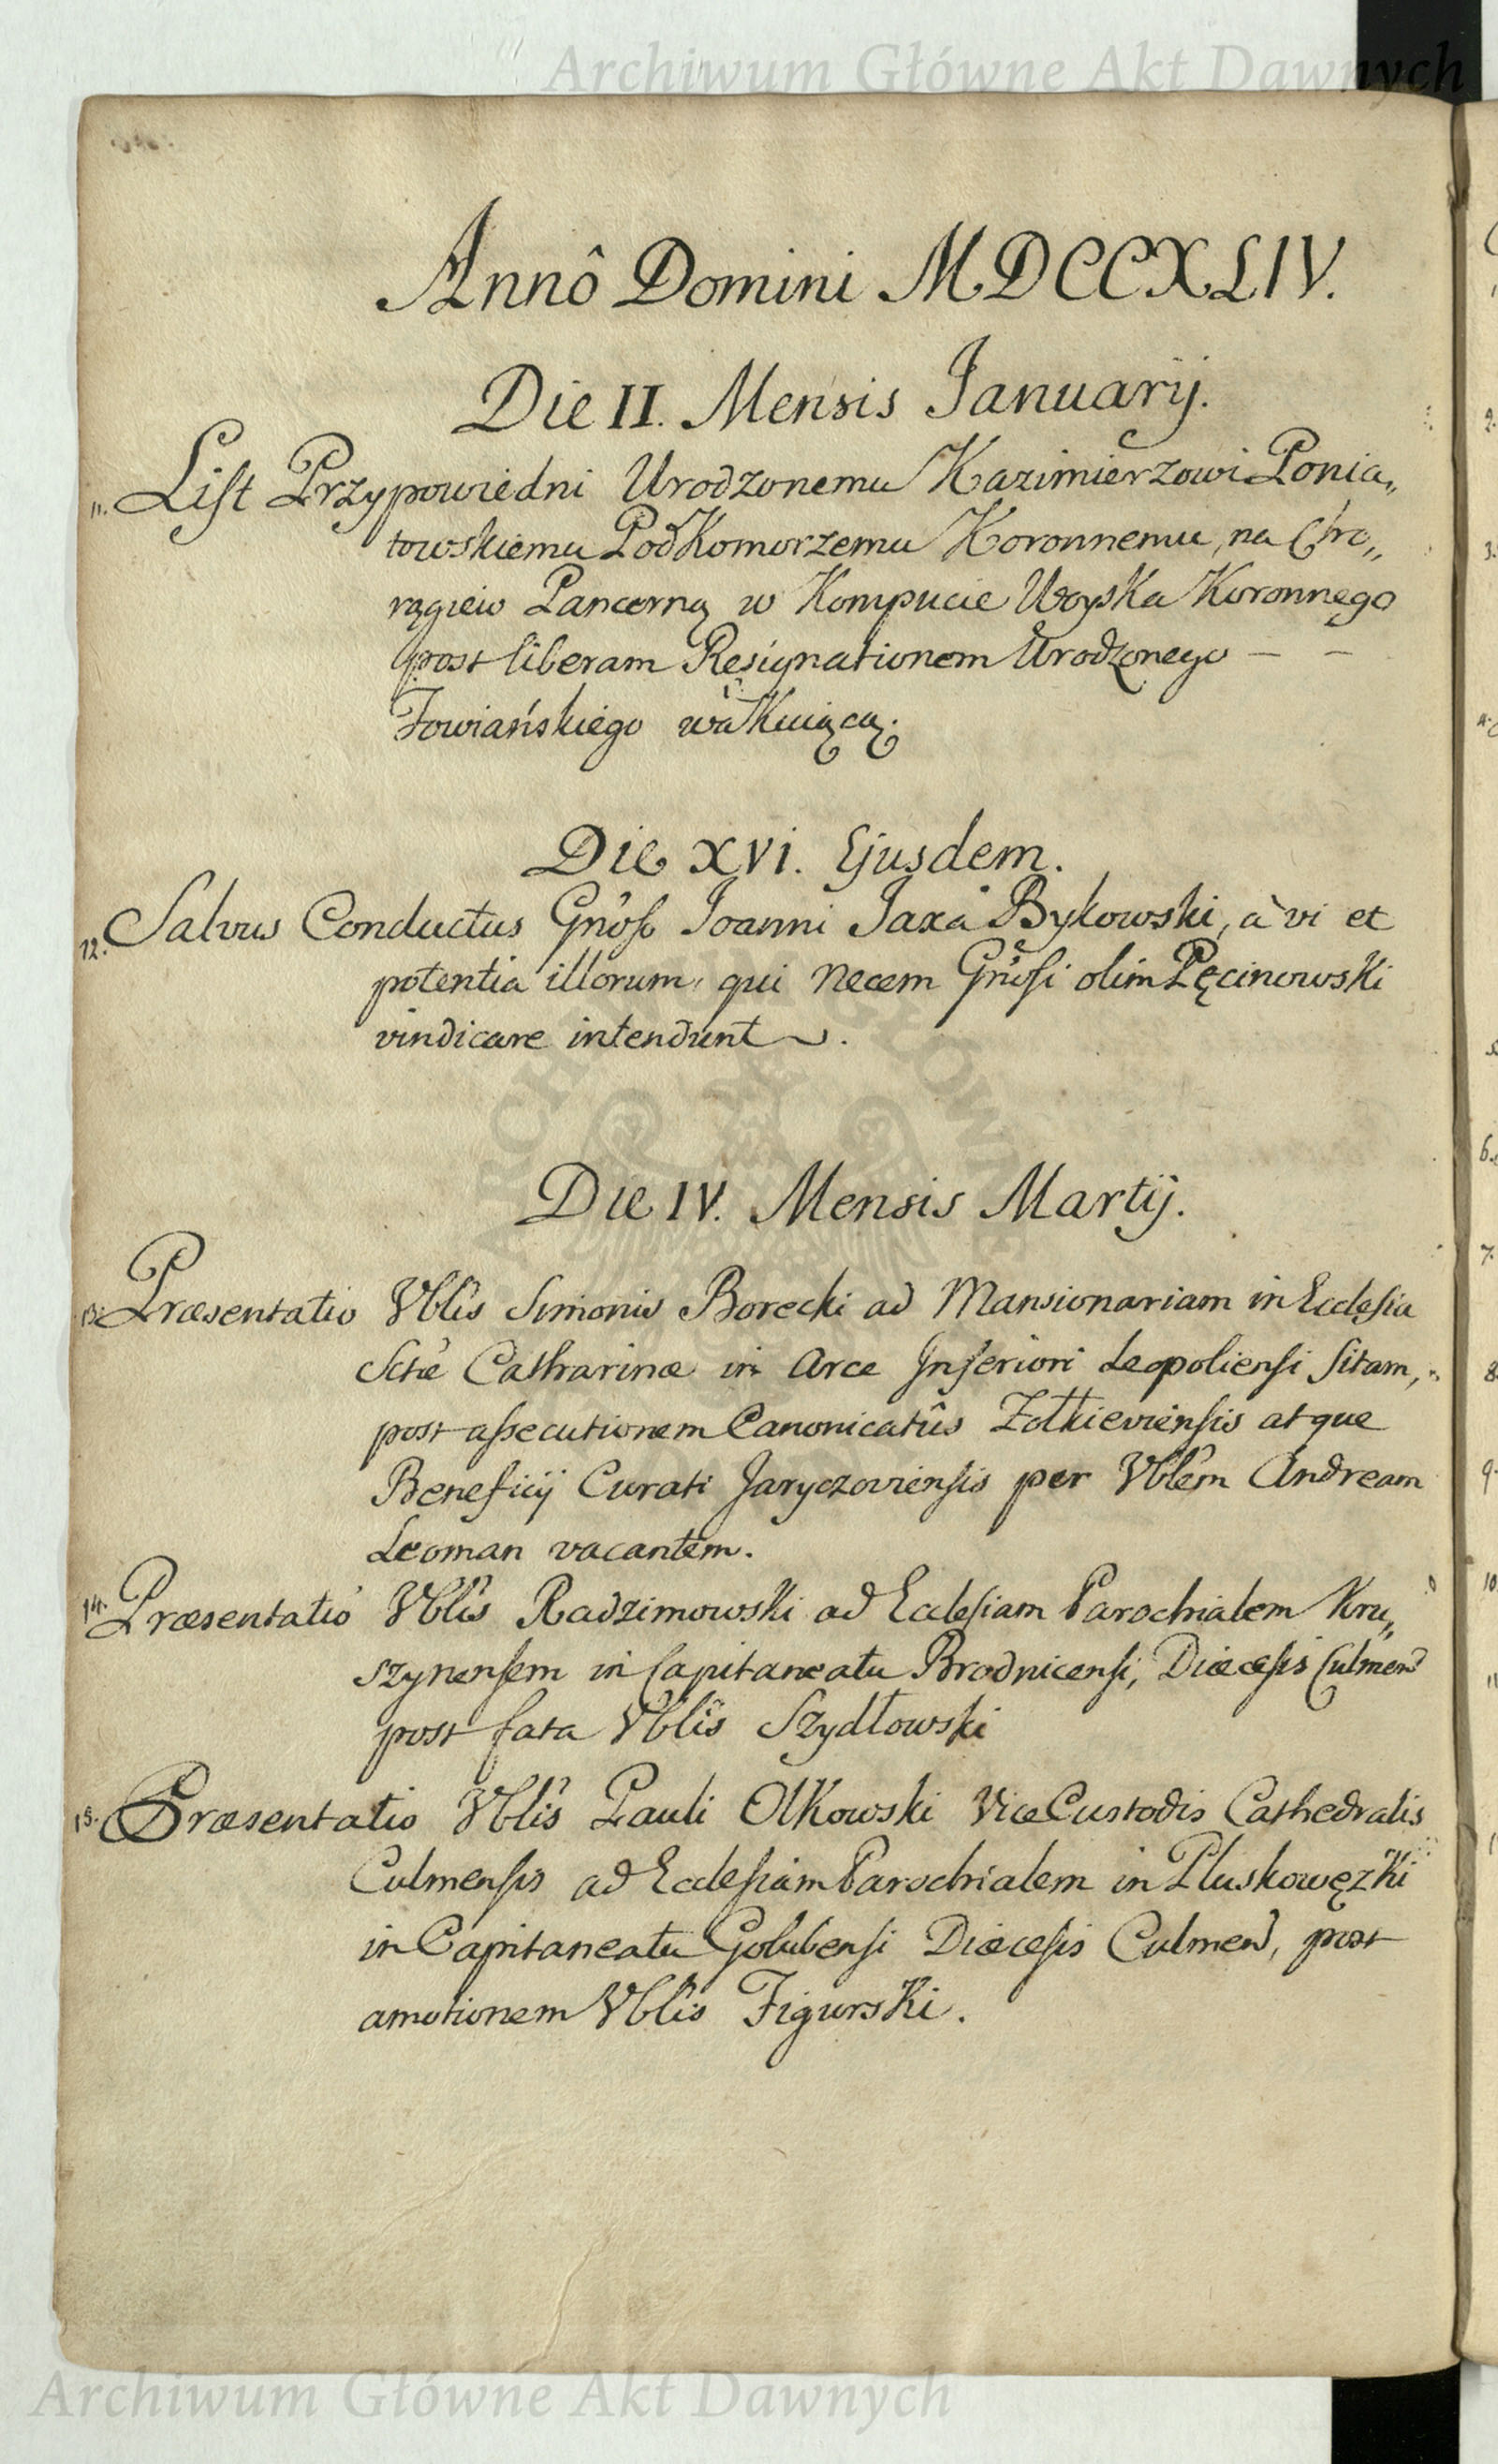 Archiwum Główne Akt Dawnych
Annô Domini MDCCXLIV.
Die II. Mensis Januarij.
11. List Przypowiedni Urodzonemu Kazimierzowi Ponia„
towskiemu PodKomorzemu Koronnemu, na Cho„
rągiew Pancerną w Kompucie Woyska Koronnego
post liberam Resignationem Urodzonego – –
Towiańskiego waKuiącą.
Die XVI. Ejusdem.
12. Salvus Conductus Gnoso Joanni Jaxa Bykowski, à vi et
potentia illorum, qui Necem Gnosi olim Pęcinowski
vindicare intendunt.
Die IV. Mensis Martij.
13. Præsentatio Vblis Simonis Borecki ad Mansionariam in Ecclesia
Sctæ Catharinæ in Arce Inferiori Leopoliensi sitam,
post assecutionem Canonicatûs Zołkieviensis atque
Beneficij Curati Jaryczoviensis per Vblem Andream
Leoman vacantem.
14. Præsentatio Vblis Radzimowski ad Ecclesiam Parochialem Kru„
szynensem in Capitaneatu Brodnicensi, Diæcesis Culmen
post fata Vblis Szydłowski
15. Præsentatio Vblis Pauli Olkowski ViceCustodis Cathedralis
Culmensis ad Ecclesiam Parochialem in Pluskowęzki
in Capitaneatu Golubensi Diæcesis Culmen, post
amotionem Vblis Figurski.
Archiwum Główne Akt Dawnych